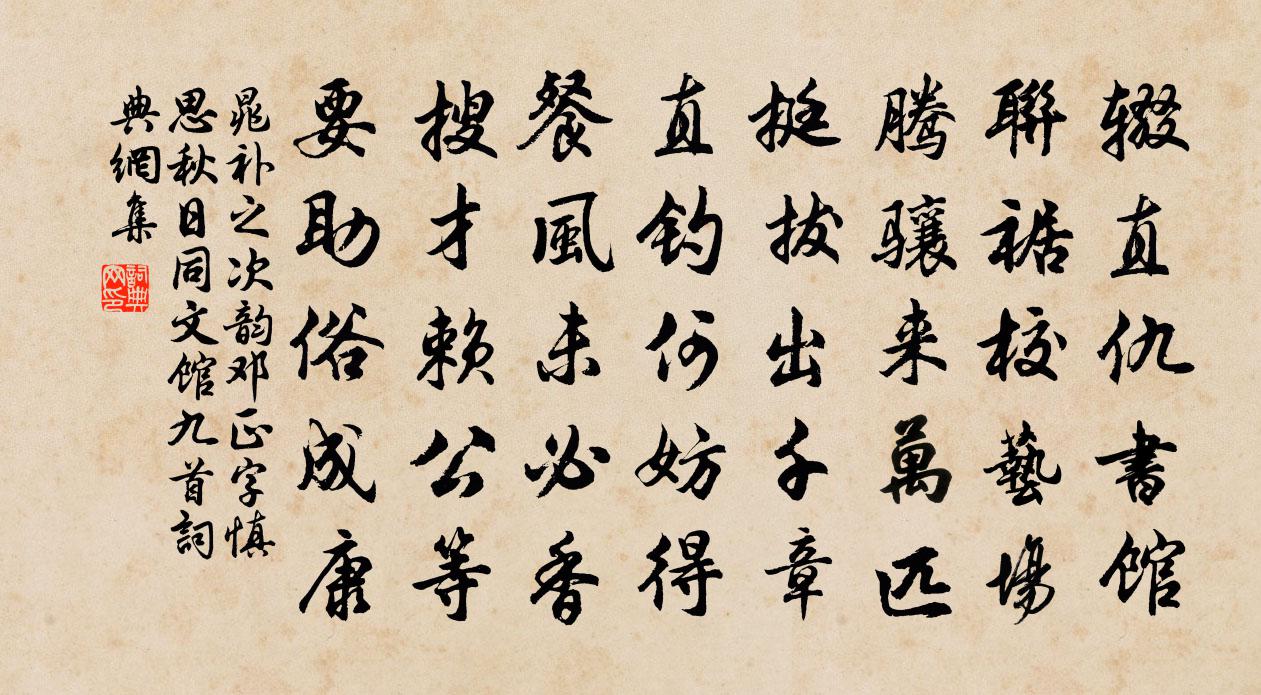 辍直仇書馆
聯裾校藝場
腾骧来萬匹
挺拔出千章
直钓何妨得
餐風未必香
搜才赖公等
要助俗成康
晁补之次韵邓正字慎
思秋日同文馆九首詞
典網集
詞典网印